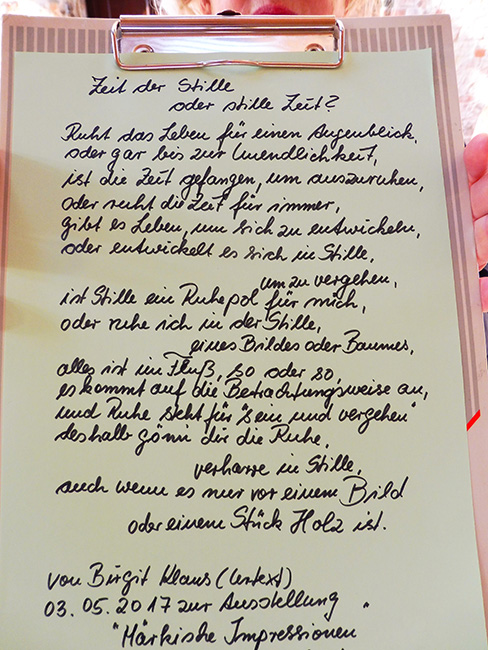 Zeit der Stille
oder stille Zeit?
Ruht das Leben für einen Augenblick,
oder gar bis zur Unendlichkeit,
ist die Zeit gefangen, um auszuruhen,
oder ruht die Zeit für immer,
gibt es Leben, um sich zu entwickeln,
oder entwickelt es sich in Stille,
um zu vergehen,
ist Stille ein Ruhepol für mich,
oder ruhe ich in der Stille,
eines Bildes oder Baumes,
alles ist im Fluß, so oder so,
es kommt auf die Betrachtungsweise an,
und Ruhe steht für "sein und vergehen"
deshalb gönn dir die Ruhe,
verharre in Stille,
auch wenn es nur vor einem Bild
oder einem Stück Holz ist.
von Birgit Klaus (Urtext)
03.05.2017 zur Ausstellung "
"Märkische Impressionen